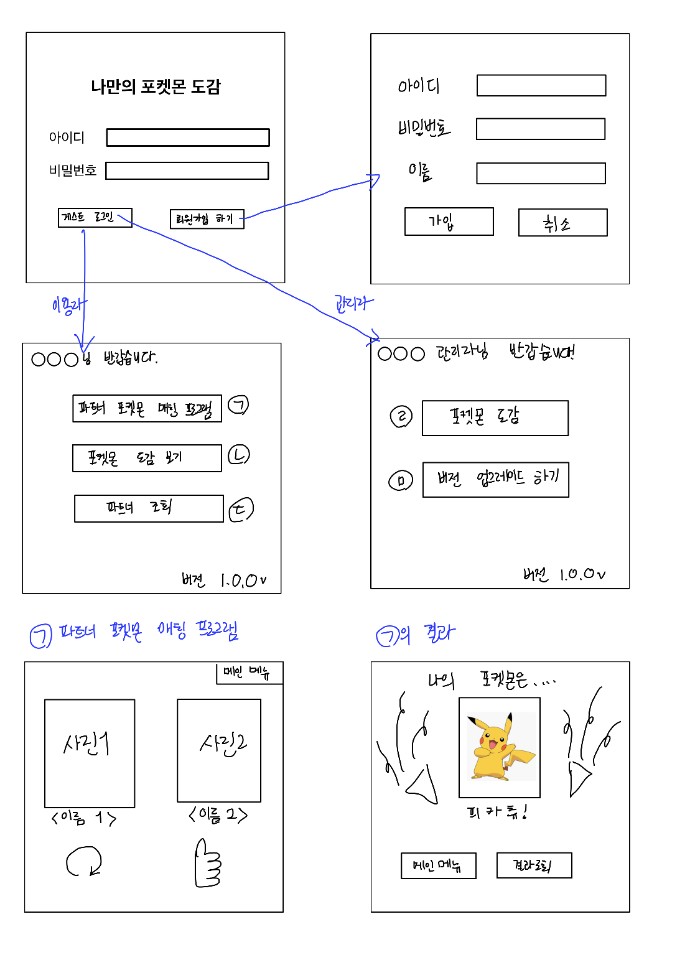 나만의 포켓몬 도감
아이디
비밀번호
게스트 로그인
회원가입 하기
아이디
비밀번호
이름
가입
취소
이용자
관리자
○○○님 반갑습니다.
파트너 포켓몬 매칭 프로그램 ㄱ
포켓몬 도감 보기 ㄴ
파트너 조회 ㄷ
버전 1.0.0v
○○○ 관리자님 반갑습니다!
ㄹ 포켓몬 도감
ㅁ 버전 업그레이드 하기
버전 1.0.0v
ㄱ 파트너 포켓몬 매칭 프로그램
메인 메뉴
사진1
사진2
<이름 1>
<이름 2>
ㄱ의 결과
나의 포켓몬은....
피카츄!
메인 메뉴
결과조회